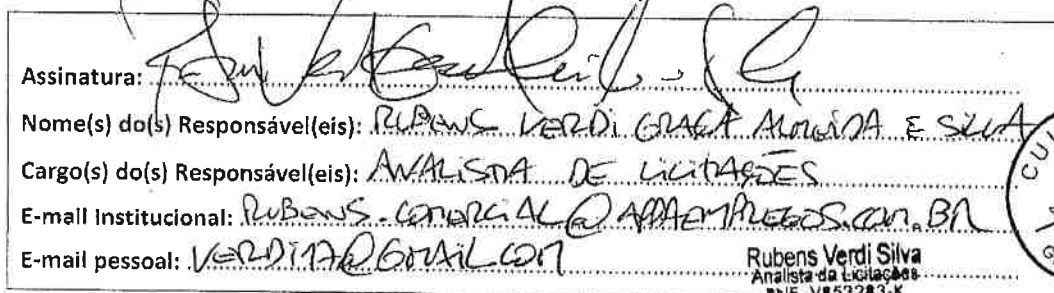 Assinatura:
Nome(s) do(s) Responsável(eis): RUBENS VERDI GRAÇA ALMEIDA E SILVA
Cargo(s) do(s) Responsável(eis): ANALISTA DE LICITAÇÕES
E-mail Institucional: RUBENS.COMERCIAL@APPAEMPREGOS.COM.BR
E-mail pessoal: VERDI17@GMAIL.COM
Rubens Verdi Silva
Analista de Licitações
RNE V853283-K
CUI